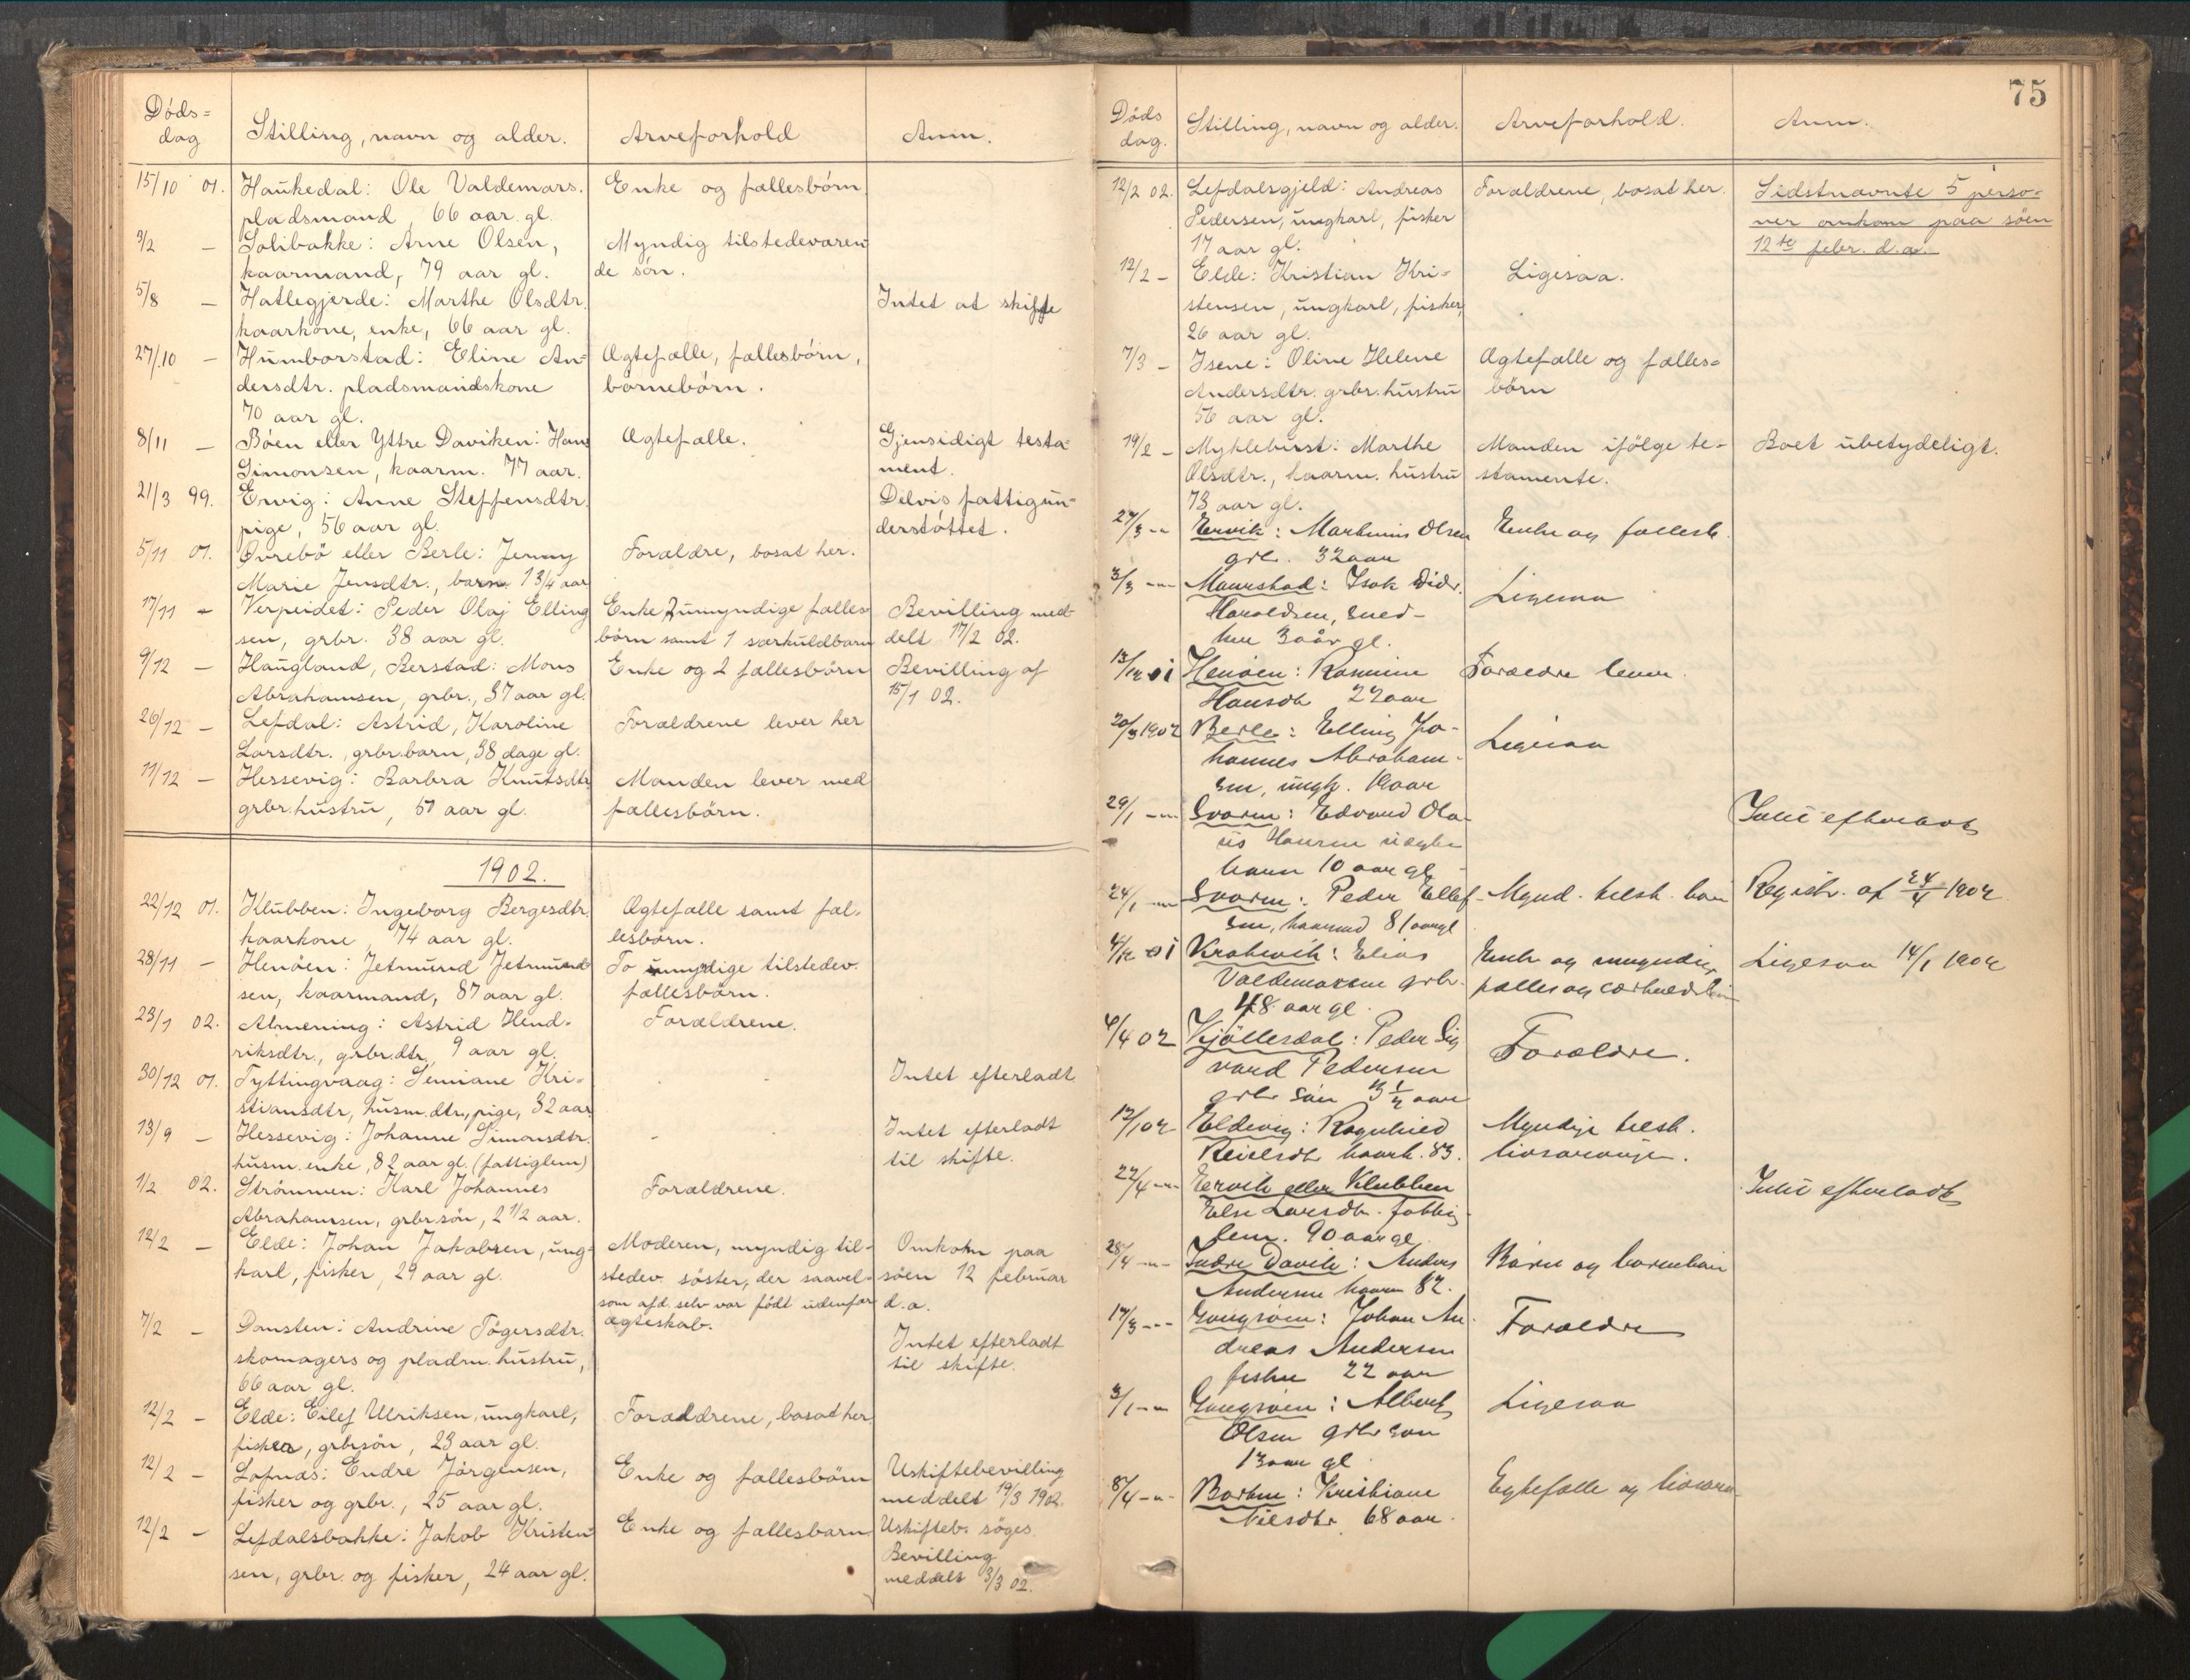 Døds=
dag
Stilling, navn og alder.
Arveforhold
Anm.
15/10 01. Haukedal: Ole Valdemars. Enke og fællesbörn.
pladsmand, 66 aar gl.
9/2 — Solibakke: Arne Olsen, Myndig tilstedeværen
kaarmand, 79 aar gl. de sön.
5/8 — Hatlegjerde: Marthe Olsdtr. Intet at skifte
kaarkone, enke, 66 aar gl.
27/10 — Humborstad: Eline An= Ægtefælle, fællesbörn,
dersdtr. pladsmandskone börnebörn.
70 aar gl.
8/11 — Böen eller Yttre Daviken: Hans Ægtefælle. Gjensidigt testa=
Simonsen, kaarm. 77 aar. ment.
21/3 99. Ervig: Anne Steffensdtr. Delvis fattigun=
pige, 56 aar gl. derstöttet.
5/11 01. Övrebö eller Berle: Jenny Forældre, bosat her.
Marie Jensdtr., barn 1 3/4 aar
17/11 — Verpeidet: Peder Olaj Elling Enke 2 umyndige fælles
sen, grbr. 38 aar gl. börn samt 1 særkuldbarn
Bevilling med
delt 17/2 02.
9/12 — Haugland, Berstad: Mons Enke og 2 fællesbörn Bevilling af
Abrahamsen, grbr., 37 aar gl. 15/1 02.
26/12 — Lefdal: Astrid, Karoline Forældrene lever her
Larsdtr., grbr.barn, 38 dage gl.
11/12 — Hessevig: Barbra Knutsdtr Manden lever med
grbr.hustru, 57 aar gl. fællesbörn.
1902.
22/12 01. Klubben: Ingeborg Bergesdtr. Ægtefælle samt fæl=
kaarkone, 74 aar gl. lesbörn.
28/11 — Henöen: Jetmund Jetmund To umyndige tilstedev.
sen, kaarmand, 87 aar gl. fællesbörn.
23/1 02. Almening: Astrid Hend= Forældrene.
riksdtr., grbr.dtr. 9 aar gl.
30/12 01. Tyttingvaag: Semiane Kri= Intet efterladt
stiansdtr, husm.dtr, pige, 32 aar
13/9 — Hessevig: Johanne Simonsdtr. Intet efterladt
husm.enke, 82 aar gl. (fattiglem) til skifte.
1/2 02. Strömmen: Karl Johannes Forældrene.
Abrahamsen, grbrsön, 2 1/2 aar.
12/2 — Elde: Johan Jakobsen, ung= Moderen, myndig til= Omkom paa
karl, fisker, 29 aar gl. stedev. söster, der saavel= söen 12 februar
som afd. selv var født udenfor d.a.
ægteskab.
7/2 — Domsten: Andrine Tögersdtr. Intet efterladt
skomagers og pladsm. hustru, til skifte.
66 aar gl.
12/2 — Elde: Eilef Ulriksen, ungkarl, Forældrene, bosat her
fisker, grbrsön, 23 aar gl.
12/2 — Lofnæs: Endre Jörgensen, Enke og fællesbörn Uskiftebevilling
fisker og grbr., 25 aar gl. meddelt 19/3 1902.
12/2 — Lefdalsbakke: Jakob Kristen= Enke og fællesbarn Uskifteb. söges.
Bevilling
sen, grbr. og fisker, 24 aar gl. meddelt 3/3 02.
75
Døds
dag.
Stilling, navn og alder.
Arveforhold.
Anm.
12/2 02. Lefdalsgjeld: Andreas Forældrene, bosat her. Sidstnævnte 5 perso=
Pedersen, ungkarl, fisker ner omkom paa söen
17 aar gl. 12te febr. d.a.
12/2 — Elde: Kristian Kri= Ligesaa.
stensen, ungkarl, fisker,
26 aar gl.
7/3 — Isene: Oline Helene Ægtefælle og fælles=
Andersdtr. grbr.hustru börn
56 aar gl.
19/2 — Myklebust: Marthe Manden ifölge te= Boet ubetydeligt.
Olsdtr., kaarm. hustru stamente.
73 aar gl.
27/3 — Ervik: Marthinus Olsen Enke og fællesb.
grbr. 32 aar
3/3 — Maurstad: Isak Didr. Ligesaa
Haraldsen,
3 aar gl.
13/12 01 Henöen: Rasmine Forældre lever.
Hansdtr 22 aar
20/3 1902 Berle: Elling Jo= Ligesaa
hannes Abraham=
sen, ungk. 19 aar
29/1 — Svoren: Edvard Ola= Intet efterladt
us Hansen
barn 10 aar gl
24/1 — Svoren: Peder Ellef= Mynd. tilst. börn Registr. af 24/4 1902
sen, kaarmd 81 aar gl
4/12 01 Krokevik: Elias Enke og umyndige Ligesaa 14/1 1902
Valdemarsen grbr. fælles og særkuldbörn
48 aar gl.
4/4 02 Kjöllesdal: Peder Sig Forældre.
vard Pedersen
grbr sön 3 1/2 aar
12/1 02 Eldevig: Ragnhild Myndige tilst.
Reielsdtr kaark. 83. livsarvinger.
22/4 — Ervik eller Klubben Intet efterladt
Else Larsdtr. fattig=
lem. 90 aar gl.
28/4 — Indre Davik: Anders Börn og barnebörn
Andersen kaarm 82.
17/3 — Gangsöen: Johan An= Forældre
dreas Andersen
fisker 22 aar
3/1 — Gangsöen: Albert Ligesaa
Olsen grbr sön
13 aar gl
8/4 — Bortne: Kristiane Egtefælle og livsarv
Nilsdtr. 68 aar.